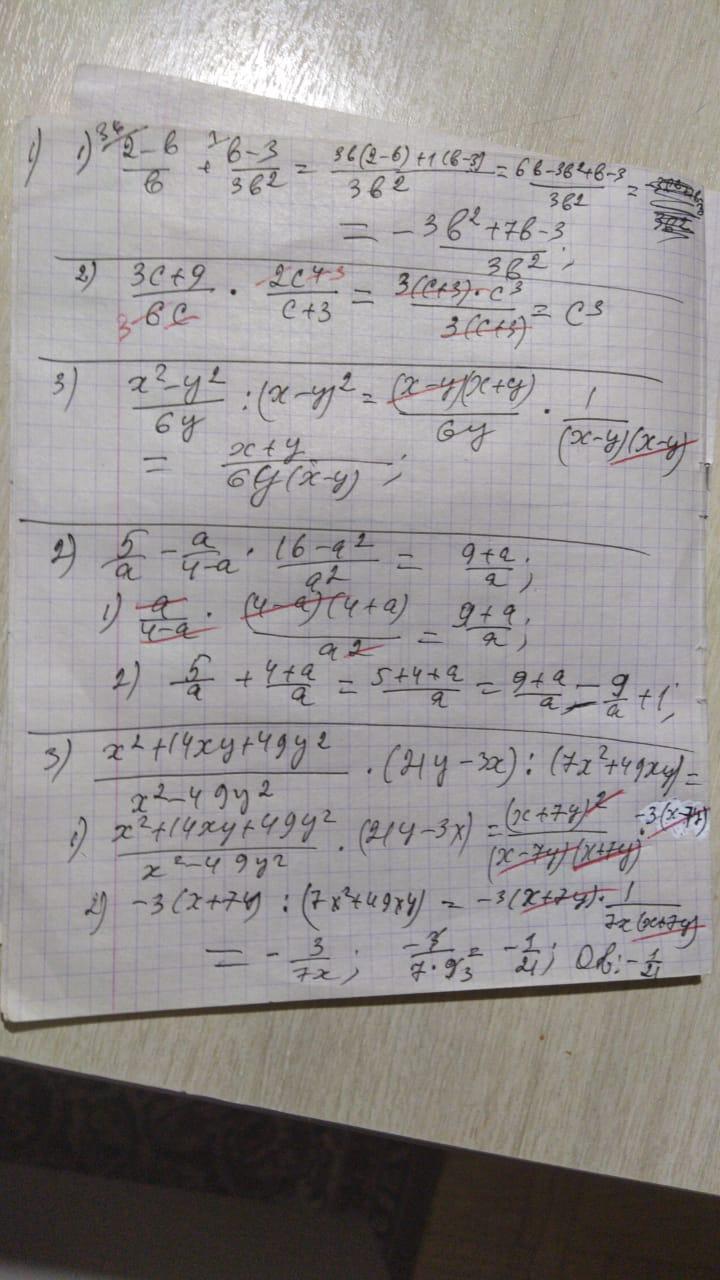 1) 1) (2-b)/b + (b-3)/3b² = (3b(2-b)+1(b-3))/3b² = (6b-3b²+b-3)/3b² =
= (-3b²+7b-3)/3b²;
2) (3c+9)/6c · 2c⁴/(c+3) = (3(c+3)·c³)/(3(c+3)) = c³
3) (x²-y²)/6y : (x-y)² = ((x-y)(x+y))/6y · 1/((x-y)(x-y))
= (x+y)/(6y(x-y));
2) 5/a - a/(4-a) · (16-a²)/a² = (9+a)/a;
1) a/(4-a) · ((4-a)(4+a))/a² = (9+a)/a;
2) 5/a + (4+a)/a = (5+4+a)/a = (9+a)/a = 9/a + 1;
3) (x²+14xy+49y²)/(x²-49y²) · (21y-3x) : (7x²+49xy) =
1) (x²+14xy+49y²)/(x²-49y²) · (21y-3x) = (x+7y)²/((x-7y)(x+7y)) · -3(x-7y)
2) -3(x+7y) : (7x²+49xy) = -3(x+7y) · 1/(7x(x+7y))
= -3/7x; -3/(7·9) 3 = -1/21; Отв: -1/21